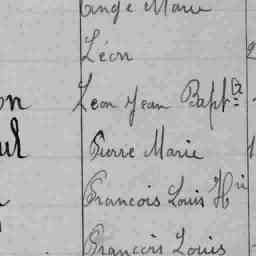 Ange Marie
Léon
Léon Jean Bapt^te
Pierre Marie
François Louis H^ri
François Louis